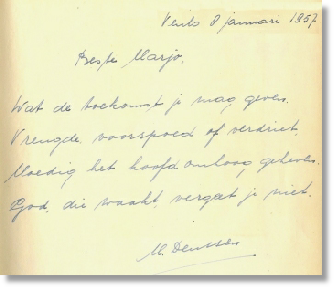 Venlo 8 januari 1957
Beste Marjo.
Wat de toekomst je mag geven.
Vreugde, voorspoed of verdriet
Moedig het hoofd omhoog geheven.
God, die waakt, vergeet je niet.
M.